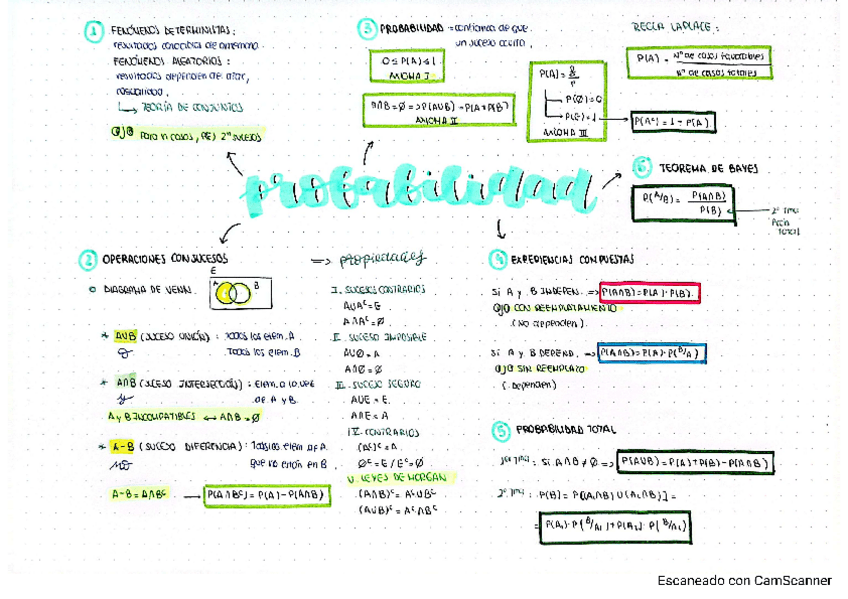 1 FENÓMENOS DETERMINISTAS:
resultados conocidos de antemano.
FENÓMENOS ALEATORIOS:
resultados dependen de azar,
casualidad.
TEORÍA DE CONJUNTOS
Para n casos, 2ⁿ sucesos
3 PROBABILIDAD = confianza de que
un suceso ocurra.
0 ≤ P(A) ≤ 1
AXIOMA I
A∩B = Ø => P(AUB) = P(A)+P(B)
AXIOMA II
P(∅)=0
P(E)=1
AXIOMA III
REGLA LAPLACE:
P(A) = Nº de casos favorables
Nº de casos totales
P(Aᶜ) = 1 - P(A)
probabilidad
6 TEOREMA DE BAYES
P(A/B) = P(A∩B)
P(B)
2º Tma
Total
2 OPERACIONES CON SUCESOS
E
A B
DIAGRAMA DE VENN.
* AUB (SUCESO UNIÓN): Todos los elem. A
Todos los elem. B
* A∩B (SUCESO INTERSECCIÓN): elem.
DE A Y B.
A y B INCOMPATIBLES ↔ A∩B = Ø
* A-B (SUCESO DIFERENCIA): Todos los elem. de A
que no están en B.
A-B = A∩Bᶜ → P(A∩Bᶜ) = P(A) - P(A∩B)
=> propiedades
I. SUCESOS CONTRARIOS
AUAᶜ = E
A∩Aᶜ = Ø
II. SUCESO IMPOSIBLE
AUØ = A
A∩Ø = Ø
III. SUCESO SEGURO
AUE = E.
A∩E = A
IV. CONTRARIOS
(Aᶜ)ᶜ = A
Øᶜ = E / Eᶜ = Ø
V. LEYES DE MORGAN
(A∩B)ᶜ = AᶜUBᶜ
(AUB)ᶜ = Aᶜ∩Bᶜ
4 EXPERIENCIAS COMPUESTAS
Si A y B INDEPEN. => P(A∩B) = P(A)·P(B).
CON REEMPLAZAMIENTO
(No dependen).
Si A y B DEPEND. => P(A∩B) = P(A)·P(B/A)
SIN REEMPLAZO
(Dependen)
5 PROBABILIDAD TOTAL
1er Tma: Si A∩B ≠ Ø => P(AUB) = P(A)+P(B)-P(A∩B)
2º Tma: P(B) = P[(A₁∩B)U(A₂∩B)] =
= P(A₁)·P(B/A₁)+P(A₂)·P(B/A₂)
Escaneado con CamScanner